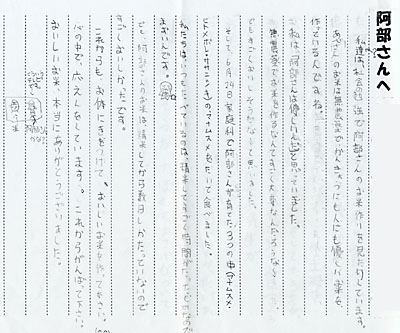 阿部さんへ
私達は、社会の勉強で阿部さんのお米作りを見たりしています。
あべさんのお米は無農薬でかんきょうにも人にも優しいお米を
作っているんですね。
私は、阿部さんは優しい人だと思っていました。
無農薬でお米を作るなんてすごく大変なんだろうな〜
でもすごくおいしそうだなーと思いました。
そして、6月24日家庭科で阿部さんが育てた3つの中(マナムスメ、
ヒトメボレ、ササニシキ)のマナムスメをたいて食べました。
私たちがいつもたべているのは、精米してすごく時間がたった
まずいんです。
でも、阿部さんのお米は、精米してから数日しかたっていないので
すごくおいしかったです。
これからも、お体に気をつけて、おいしいお米を作って下さい。
心の中で、応えんをしています。これからがんばって下さい。
おいしいお米、本当にありがとうございました。